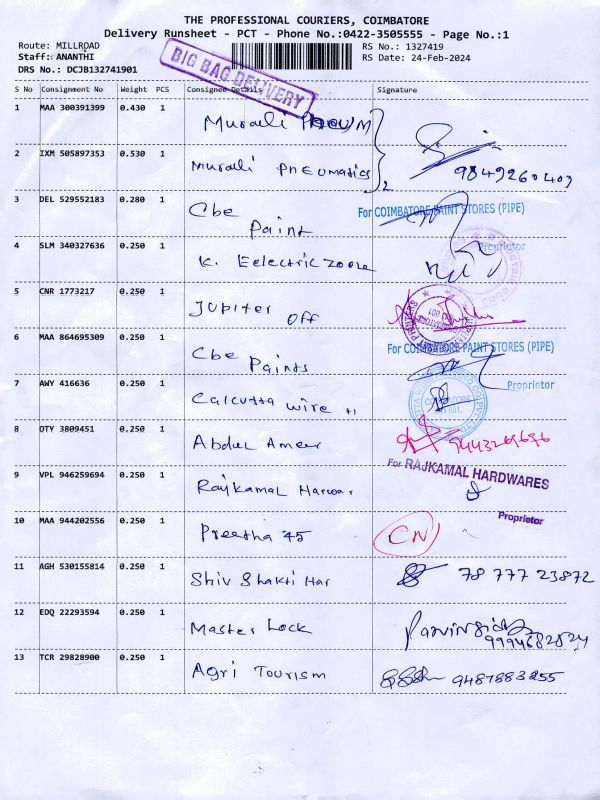 THE PROFESSIONAL COURIERS, COIMBATORE
Delivery Runsheet - PCT - Phone No.:0422-3505555 - Page No.:1
Route: MILLROAD
RS No.: 1327419
Staff: ANANTHI
RS Date: 24-Feb-2024
DRS No.: DCJB132741901
BIG BAG DELIVERY
S No Consignment No Weight PCS Consignee Details Signature
1 MAA 300391399 0.430 1 Murali
2 IXM 505897353 0.530 1 Murali Pneumatics 2 9849260409
3 DEL 529552183 0.280 1 Cbe Paint
For COIMBATORE PAINT STORES (PIPE)
Proprietor
4 SLM 340327636 0.250 1 K. Eelectric zoone
5 CNR 1773217 0.250 1 Jupiter off
6 MAA 864695309 0.250 1 Cbe Paints
For COIMBATORE PAINT STORES (PIPE)
Proprietor
7 AWY 416636 0.250 1 Calcutta wire
8 OTY 3809451 0.250 1 Abdul Ameer 9443269696
9 VPL 946259694 0.250 1 Rajkamal Harwar
For RAJKAMAL HARDWARES
Proprietor
10 MAA 944202556 0.250 1 Preetha 45 CN
11 AGH 530155814 0.250 1 Shiv Shakti Har 78 777 23872
12 EDQ 22293594 0.250 1 Master Lock 9994682824
13 TCR 29828900 0.250 1 Agri Tourism 9487883255